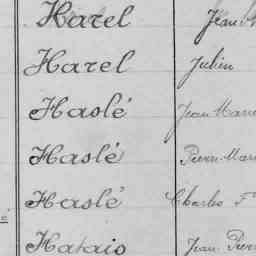 Harel Jean
Harel Julien
Haslé Jean Marie
Haslé Pierre Mari
Haslé Charles F
Hatais Jean Pierr